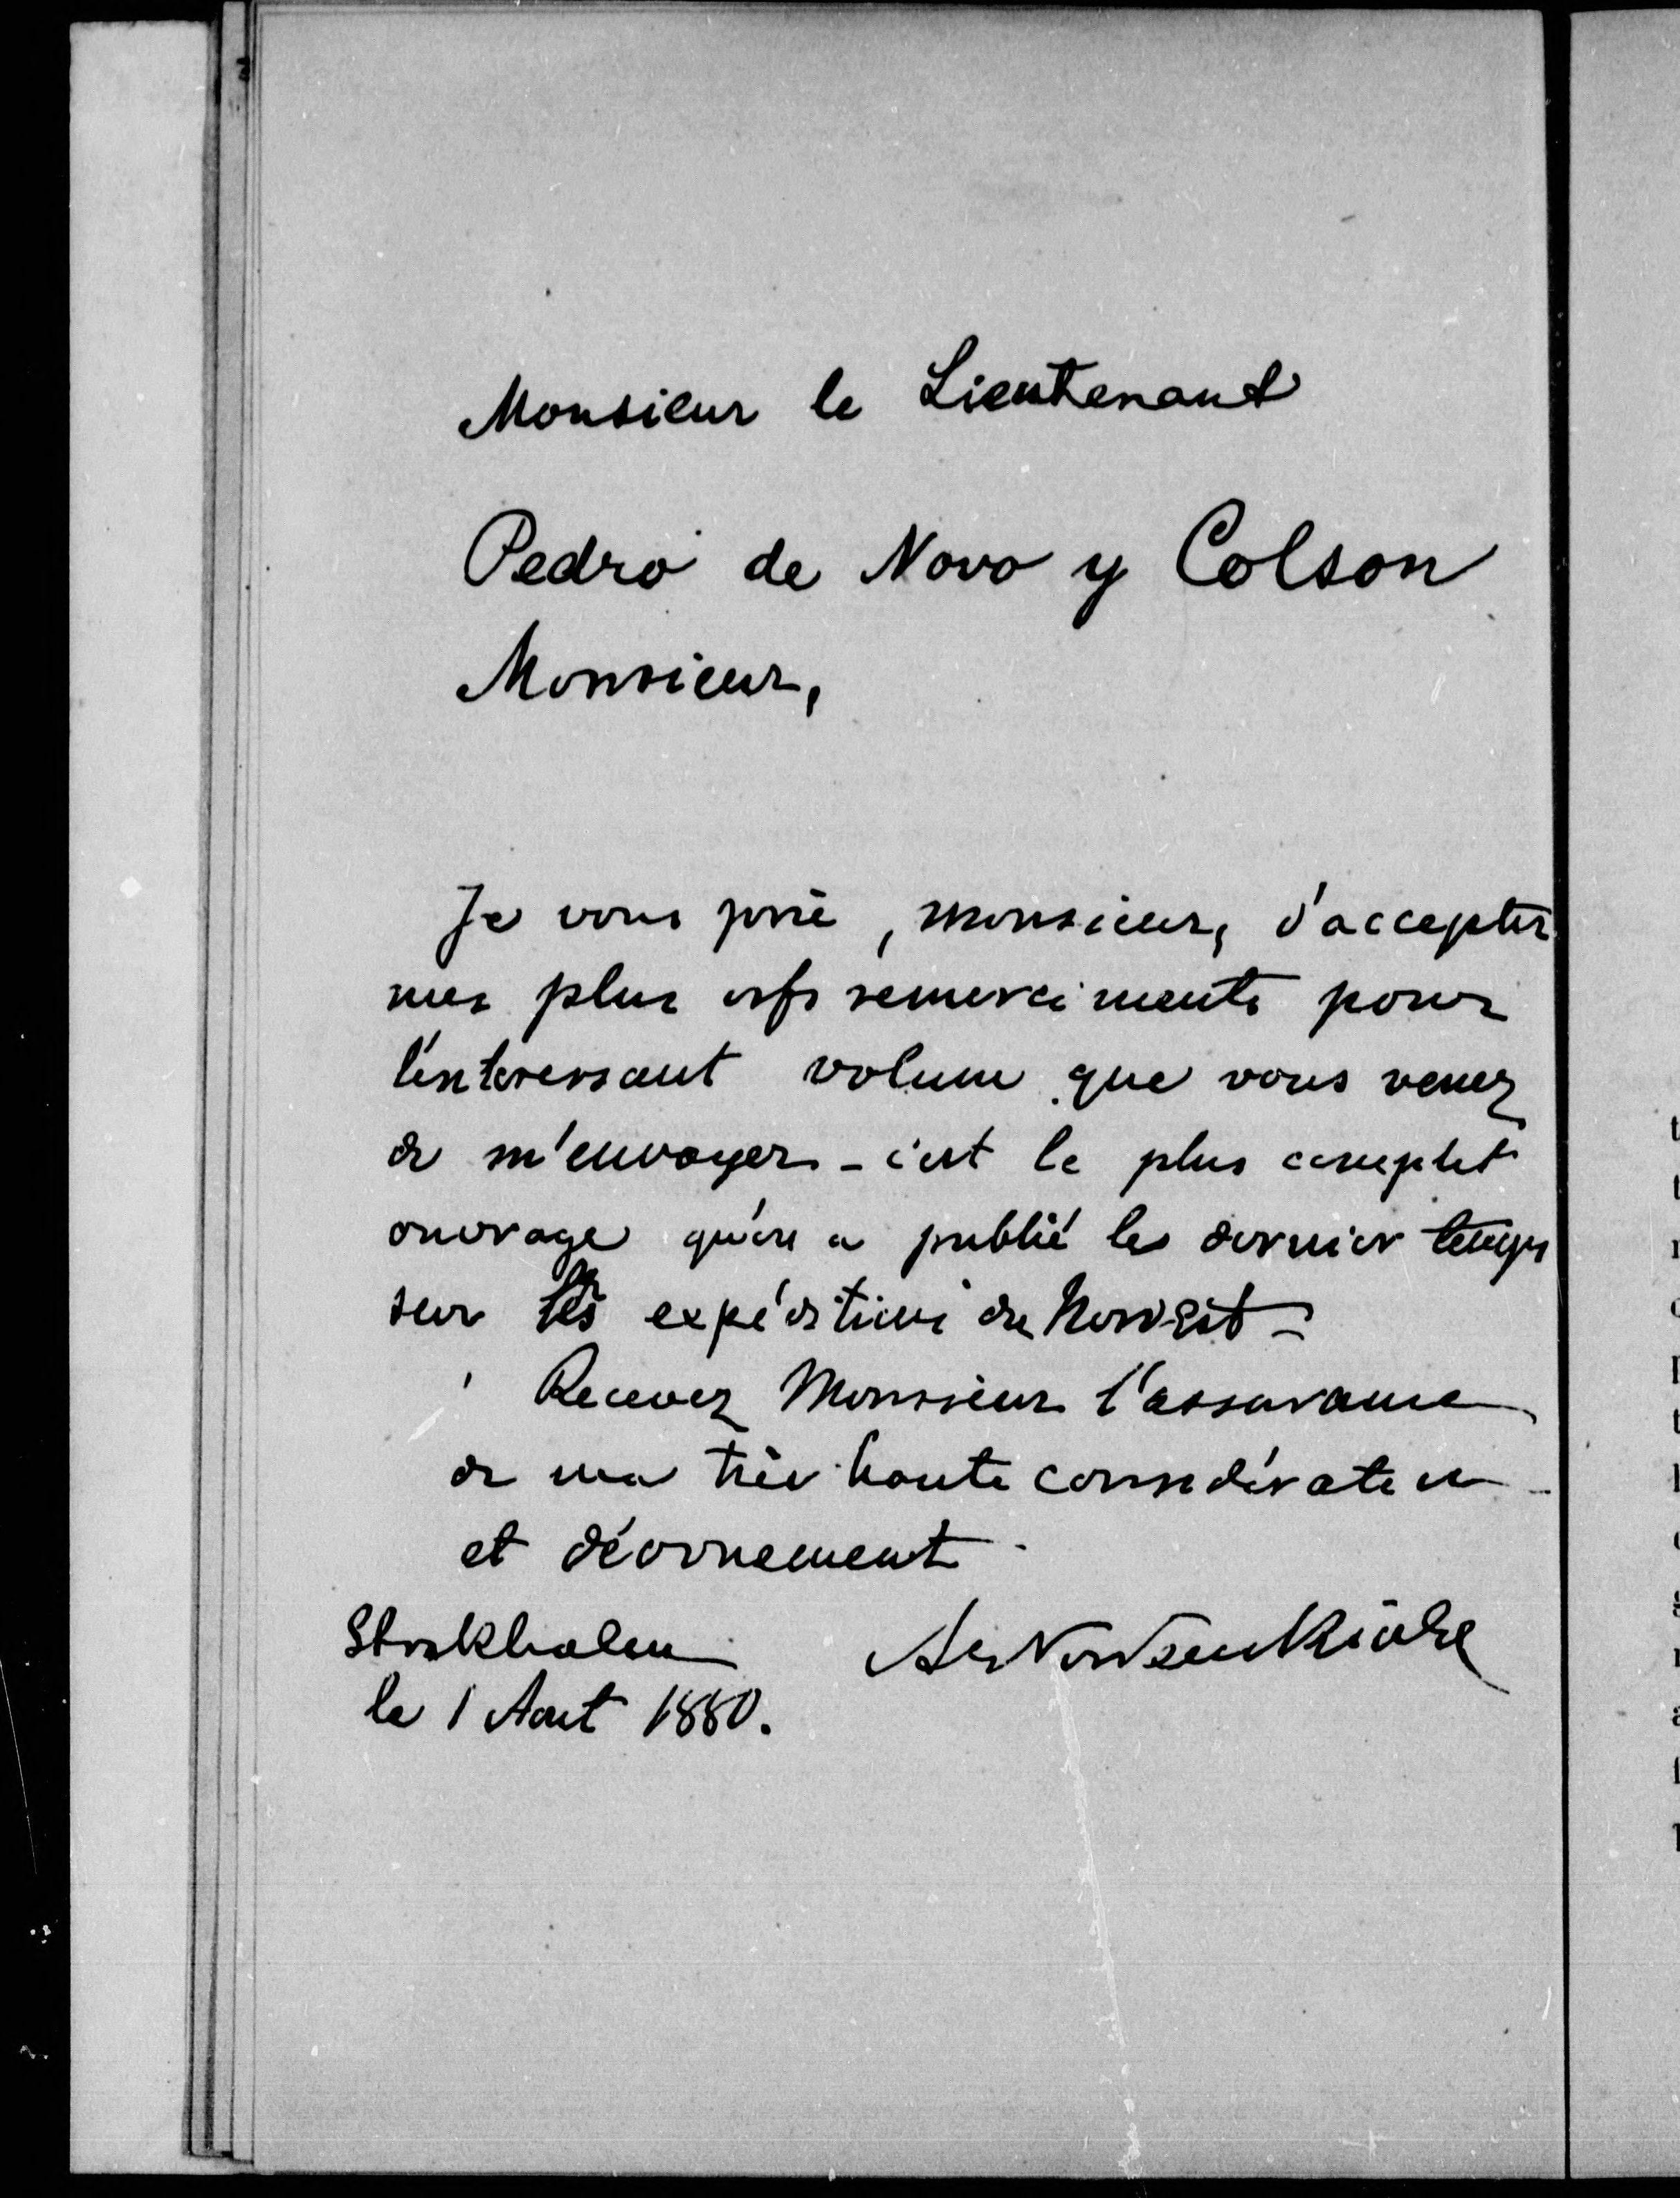 Monsieur le Lieutenant
Pedro de Novo y Colson
Monsieur,
Je vous prie, monsieur, d'accepter
mes plus vifs remerciments pour
l'interessant volume que vous venez
de m'envoyer - c'est le plus complet
ouvrage qu'on a publié les dernier temps
sur les expéditions du Nord Est -
Recevez Monsieur l'assurance
de ma très haute considération
et dévouement.
Stockholm
le 1 Aout 1880.
A E Nordenskiöld